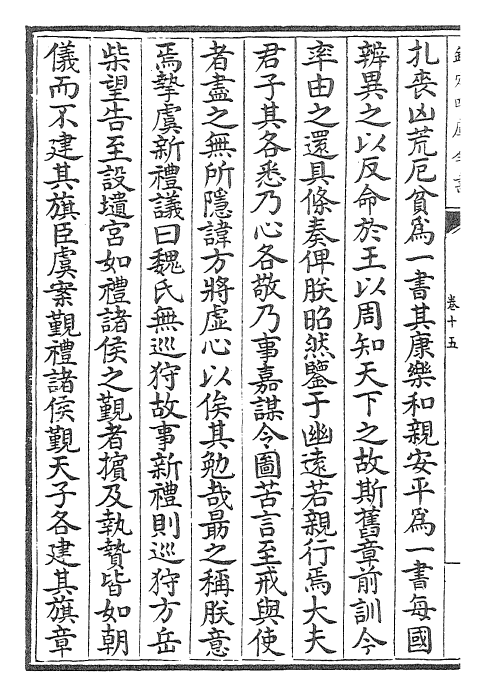 欽定四庫全書
卷十五
扎喪凶荒厄貧為一書其康樂和親安平為一書每國
辨異之以反命於王以周知天下之故斯舊章前訓今
率由之還具條奏俾朕昭然鑒于幽遠若親行焉大夫
君子其各悉乃心各敬乃事嘉謀令圖苦言至戒與使
者盡之無所隱諱方將虛心以俟其勉哉朂之稱朕意
焉摯虞新禮議曰魏氏無巡狩故事新禮則巡狩方岳
柴望告至設壝宫如禮諸侯之覲者擯及執贄皆如朝
儀而不建其旗臣虞案覲禮諸侯覲天子各建其旗章